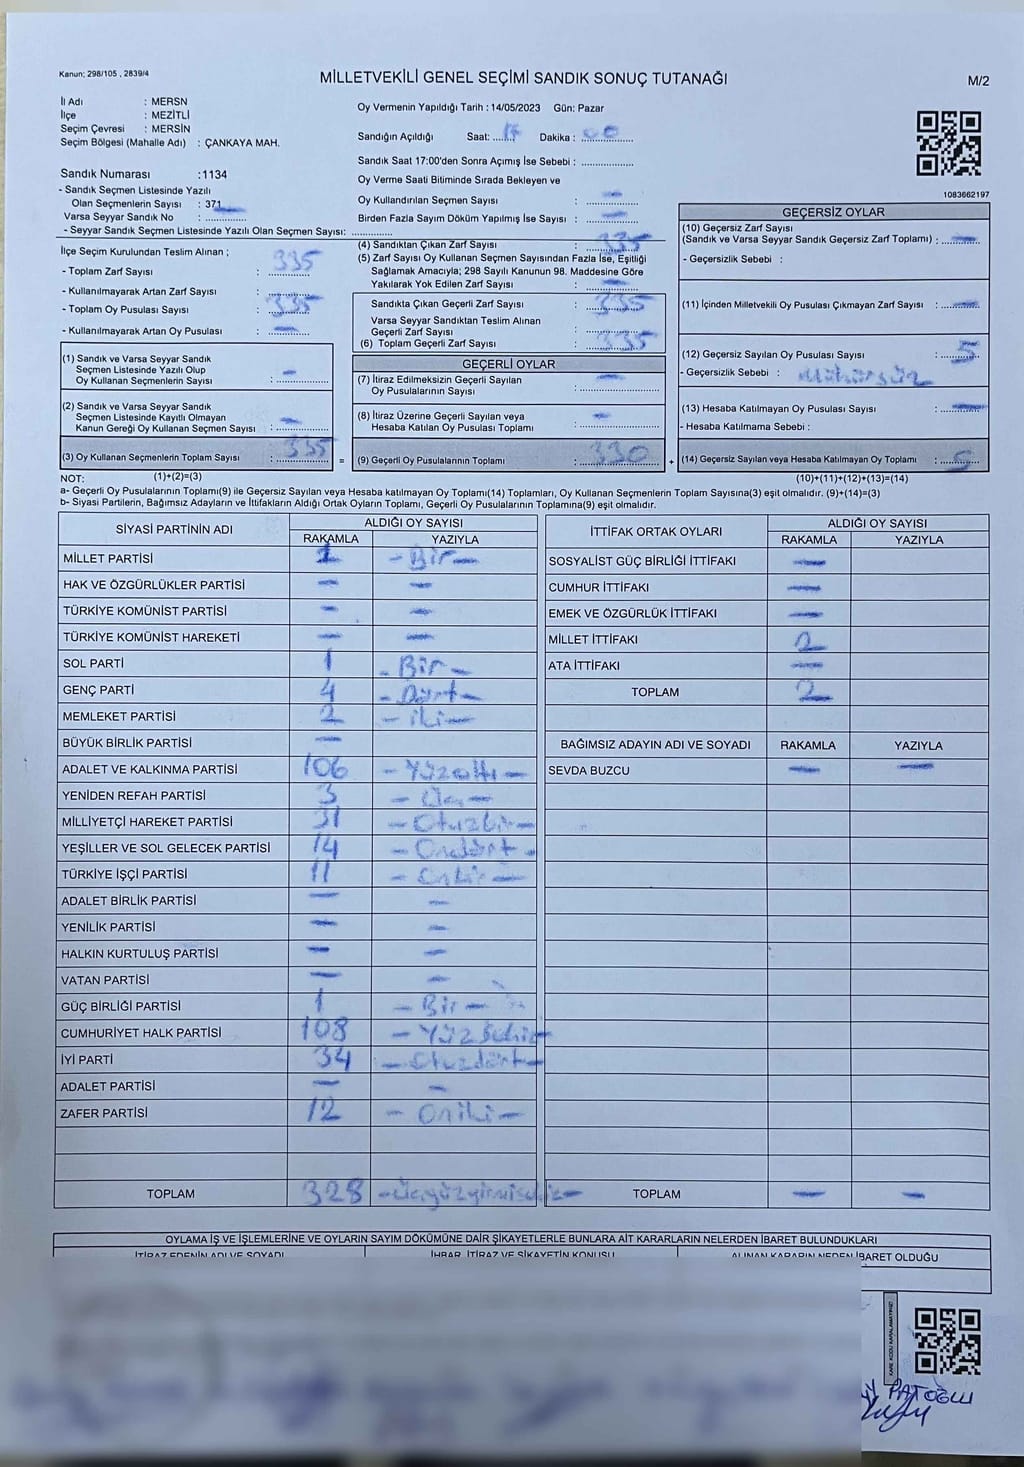 Kanun; 298/105 , 2839/4
MİLLETVEKİLİ GENEL SEÇİMİ SANDIK SONUÇ TUTANAĞI
M/2
İl Adı : MERSN
İlçe : MEZİTLİ
Seçim Çevresi : MERSİN
Seçim Bölgesi (Mahalle Adı) : ÇANKAYA MAH.
Sandık Numarası :1134
- Sandık Seçmen Listesinde Yazılı
Olan Seçmenlerin Sayısı : 371
Varsa Seyyar Sandık No : ..............
- Seyyar Sandık Seçmen Listesinde Yazılı Olan Seçmen Sayısı: ..............
Oy Vermenin Yapıldığı Tarih : 14/05/2023 Gün: Pazar
Sandığın Açıldığı Saat: 17 Dakika : 00
Sandık Saat 17:00'den Sonra Açımış İse Sebebi : ..............
Oy Verme Saati Bitiminde Sırada Bekleyen ve
Oy Kullandırılan Seçmen Sayısı : —
Birden Fazla Sayım Döküm Yapılmış İse Sayısı : —
1083662197
İlçe Seçim Kurulundan Teslim Alınan ;
- Toplam Zarf Sayısı : 335
- Kullanılmayarak Artan Zarf Sayısı : ..............
- Toplam Oy Pusulası Sayısı : 335
- Kullanılmayarak Artan Oy Pusulası : —
(1) Sandık ve Varsa Seyyar Sandık
Seçmen Listesinde Yazılı Olup
Oy Kullanan Seçmenlerin Sayısı : —
(2) Sandık ve Varsa Seyyar Sandık
Seçmen Listesinde Kayıtlı Olmayan
Kanun Gereği Oy Kullanan Seçmen Sayısı : —
(3) Oy Kullanan Seçmenlerin Toplam Sayısı : 335 =
(4) Sandıktan Çıkan Zarf Sayısı : 335
(5) Zarf Sayısı Oy Kullanan Seçmen Sayısından Fazla İse, Eşitliği
Sağlamak Amacıyla; 298 Sayılı Kanunun 98. Maddesine Göre
Yakılarak Yok Edilen Zarf Sayısı : —
Sandıkta Çıkan Geçerli Zarf Sayısı : 335
Varsa Seyyar Sandıktan Teslim Alınan
Geçerli Zarf Sayısı : —
(6) Toplam Geçerli Zarf Sayısı : 335
GEÇERLİ OYLAR
(7) İtiraz Edilmeksizin Geçerli Sayılan
Oy Pusulalarının Sayısı : —
(8) İtiraz Üzerine Geçerli Sayılan veya
Hesaba Katılan Oy Pusulası Toplamı : —
(9) Geçerli Oy Pusulalarının Toplamı : 330 +
GEÇERSİZ OYLAR
(10) Geçersiz Zarf Sayısı
(Sandık ve Varsa Seyyar Sandık Geçersiz Zarf Toplamı) : —
- Geçersizlik Sebebi :
(11) İçinden Milletvekili Oy Pusulası Çıkmayan Zarf Sayısı : —
(12) Geçersiz Sayılan Oy Pusulası Sayısı : 5
- Geçersizlik Sebebi : Mühürsüz
(13) Hesaba Katılmayan Oy Pusulası Sayısı : —
- Hesaba Katılmama Sebebi :
(14) Geçersiz Sayılan veya Hesaba Katılmayan Oy Toplamı : 5
NOT: (1)+(2)=(3) (10)+(11)+(12)+(13)=(14)
a- Geçerli Oy Pusulalarının Toplamı(9) ile Geçersiz Sayılan veya Hesaba katılmayan Oy Toplamı(14) Toplamları, Oy Kullanan Seçmenlerin Toplam Sayısına(3) eşit olmalıdır. (9)+(14)=(3)
b- Siyasi Partilerin, Bağımsız Adayların ve İttifakların Aldığı Ortak Oyların Toplamı, Geçerli Oy Pusulalarının Toplamına(9) eşit olmalıdır.
SİYASİ PARTİNİN ADI ALDIĞI OY SAYISI
RAKAMLA YAZIYLA
MİLLET PARTİSİ 1 - Bir —
HAK VE ÖZGÜRLÜKLER PARTİSİ — —
TÜRKİYE KOMÜNİST PARTİSİ — —
TÜRKİYE KOMÜNİST HAREKETİ — —
SOL PARTİ 1 - Bir —
GENÇ PARTİ 4 - Dört —
MEMLEKET PARTİSİ 2 - iki —
BÜYÜK BİRLİK PARTİSİ —
ADALET VE KALKINMA PARTİSİ 106 - Yüzaltı —
YENİDEN REFAH PARTİSİ 3 - Üç —
MİLLİYETÇİ HAREKET PARTİSİ 31 - Otuzbir —
YEŞİLLER VE SOL GELECEK PARTİSİ 14 - Ondört -
TÜRKİYE İŞÇİ PARTİSİ 11 - Onbir —
ADALET BİRLİK PARTİSİ — —
YENİLİK PARTİSİ — —
HALKIN KURTULUŞ PARTİSİ — —
VATAN PARTİSİ — —
GÜÇ BİRLİĞİ PARTİSİ 1 - Bir —
CUMHURİYET HALK PARTİSİ 108 - Yüzsekiz —
İYİ PARTİ 34 - Otuzdört —
ADALET PARTİSİ — —
ZAFER PARTİSİ 12 - Oniki —
TOPLAM 328 - Üçyüzyirmisekiz —
İTTİFAK ORTAK OYLARI ALDIĞI OY SAYISI
RAKAMLA YAZIYLA
SOSYALİST GÜÇ BİRLİĞİ İTTİFAKI —
CUMHUR İTTİFAKI —
EMEK VE ÖZGÜRLÜK İTTİFAKI —
MİLLET İTTİFAKI 2
ATA İTTİFAKI —
TOPLAM 2
BAĞIMSIZ ADAYIN ADI VE SOYADI RAKAMLA YAZIYLA
SEVDA BUZCU — —
TOPLAM — —
OYLAMA İŞ VE İŞLEMLERİNE VE OYLARIN SAYIM DÖKÜMÜNE DAİR ŞİKAYETLERLE BUNLARA AİT KARARLARIN NELERDEN İBARET BULUNDUKLARI
İTİRAZ EDENİN ADI VE SOYADI İHBAR, İTİRAZ VE ŞİKAYETİN KONUSU ALINAN KARARIN NEDEN İBARET OLDUĞU
KARE KODU KARALAMAYINIZ!